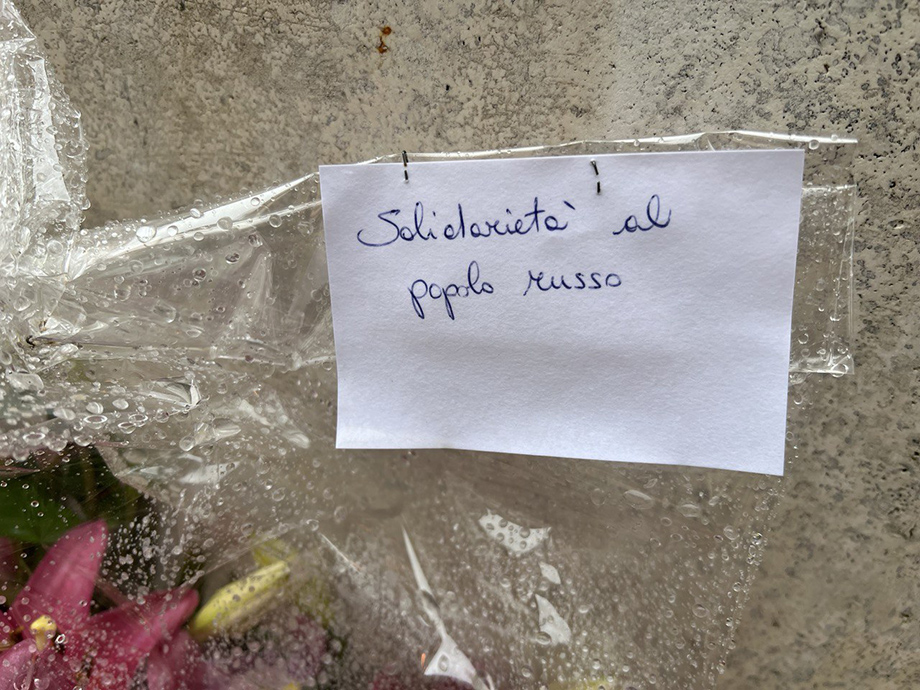 Solidarietà al
popolo russo